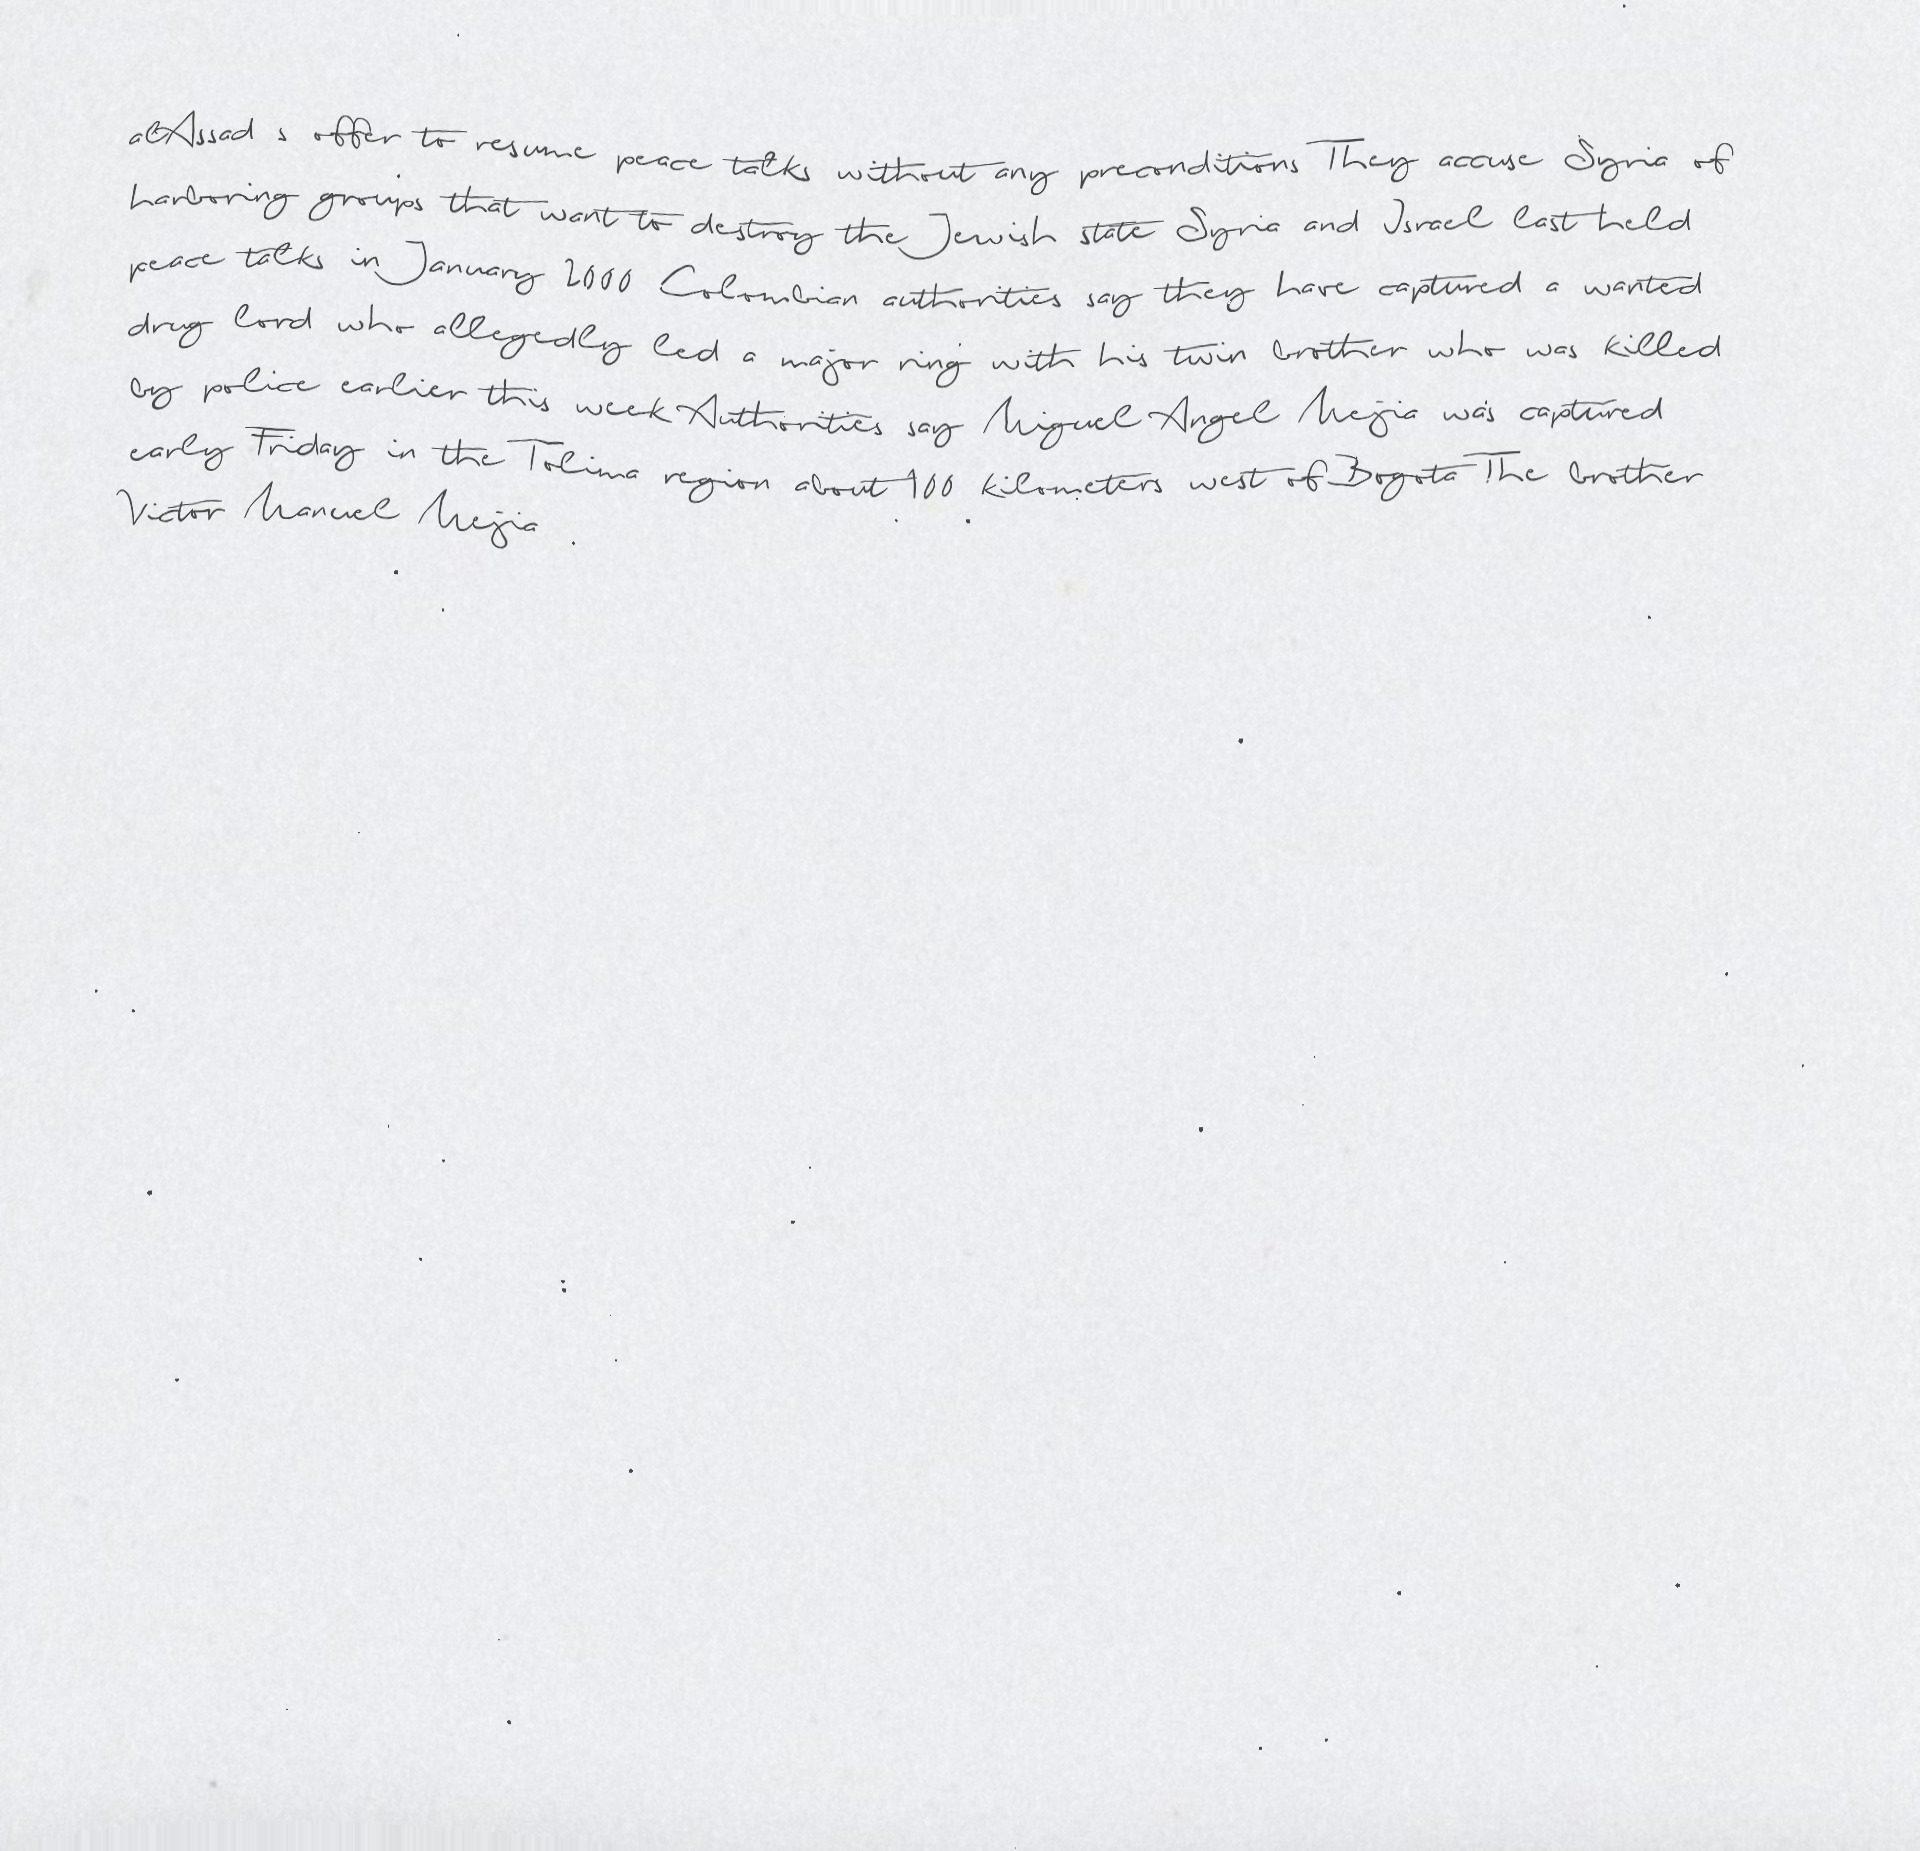 alAssad s offer to resume peace talks without any preconditions They accuse Syria of
harboring groups that want to destroy the Jewish state Syria and Israel last held
peace talks in January 2000 Colombian authorities say they have captured a wanted
drug lord who allegedly led a major ring with his twin brother who was killed
by police earlier this week Authorities say Miguel Angel Mejia was captured
early Friday in the Tolima region about 100 kilometers west of Bogota The brother
Victor Manuel Mejia